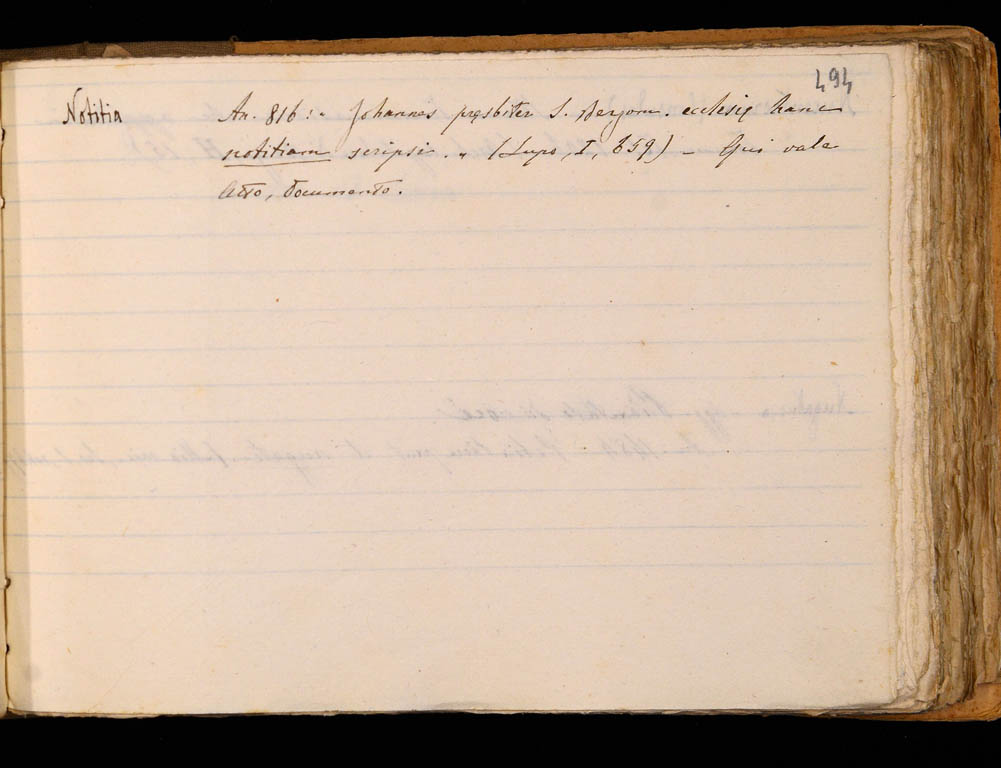 494
Notitia An. 816: " Johannes presbiter S. Bergom. ecclesię hanc
notitiam scripsi. " (Lupo, I, 659) - Qui vale
Atto, Documento.